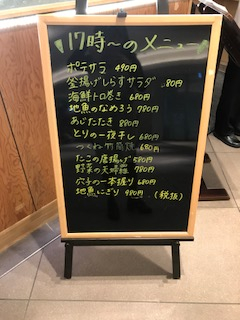 17時〜のメニュー
ポテサラ 490円
釜揚げしらすサラダ 80円
海鮮トロ巻き 680円
地魚のなめろう 780円
あじたたき 880円
とりの一夜干し 680円
つくね竹筒焼 680円
たこの唐揚げ 580円
野菜の天婦羅 780円
穴子の一本握り 680円
地魚にぎり 980円 (税抜)